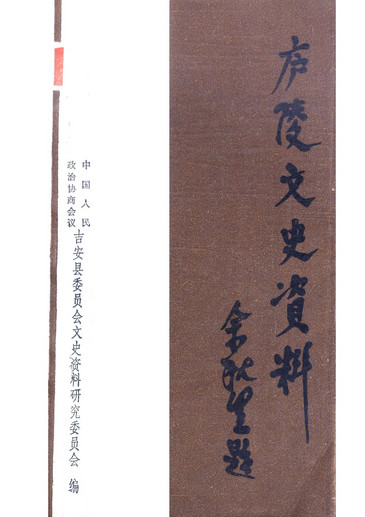 庐陵文史資料
余秋里题
中国人民
政治协商会议
吉安县委员会文史资料研究委员会 编